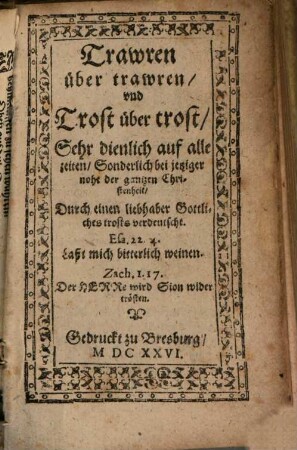 Trawren
über trawren/
vnd
Trost über trost/
Sehr dienlich auf alle
zeiten/ Sonderlich bei jeziger
noht der gantzen Chri-
stenheit/
Durch einen liebhaber Gottli-
ches trosts verdeutscht.
Esa. 22. 4.
Laßt mich bitterlich weinen.
Zach. 1. 17.
Der HERRe wird Sion wider
trösten.
Gedruckt zu Bresburg/
M DC XXVI.